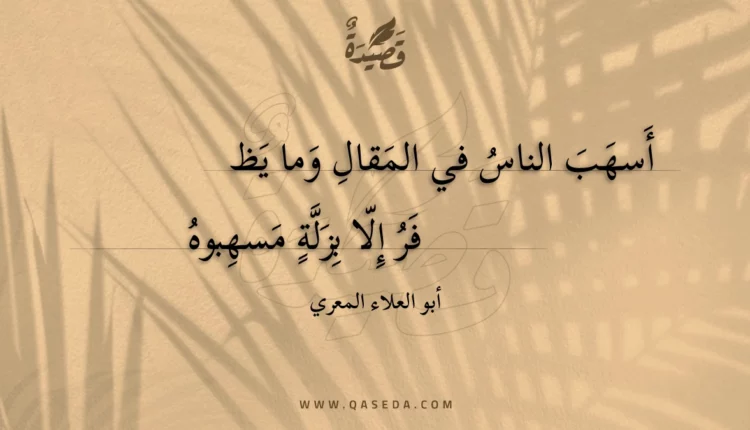 قَصِيدَةٌ
أَسهَبَ الناسُ في المَقالِ وَما يَظـ
فَرُ إِلّا بِزِلَّةٍ مَسهِبوهُ
أبو العلاء المعري
WWW.QASEDA.COM